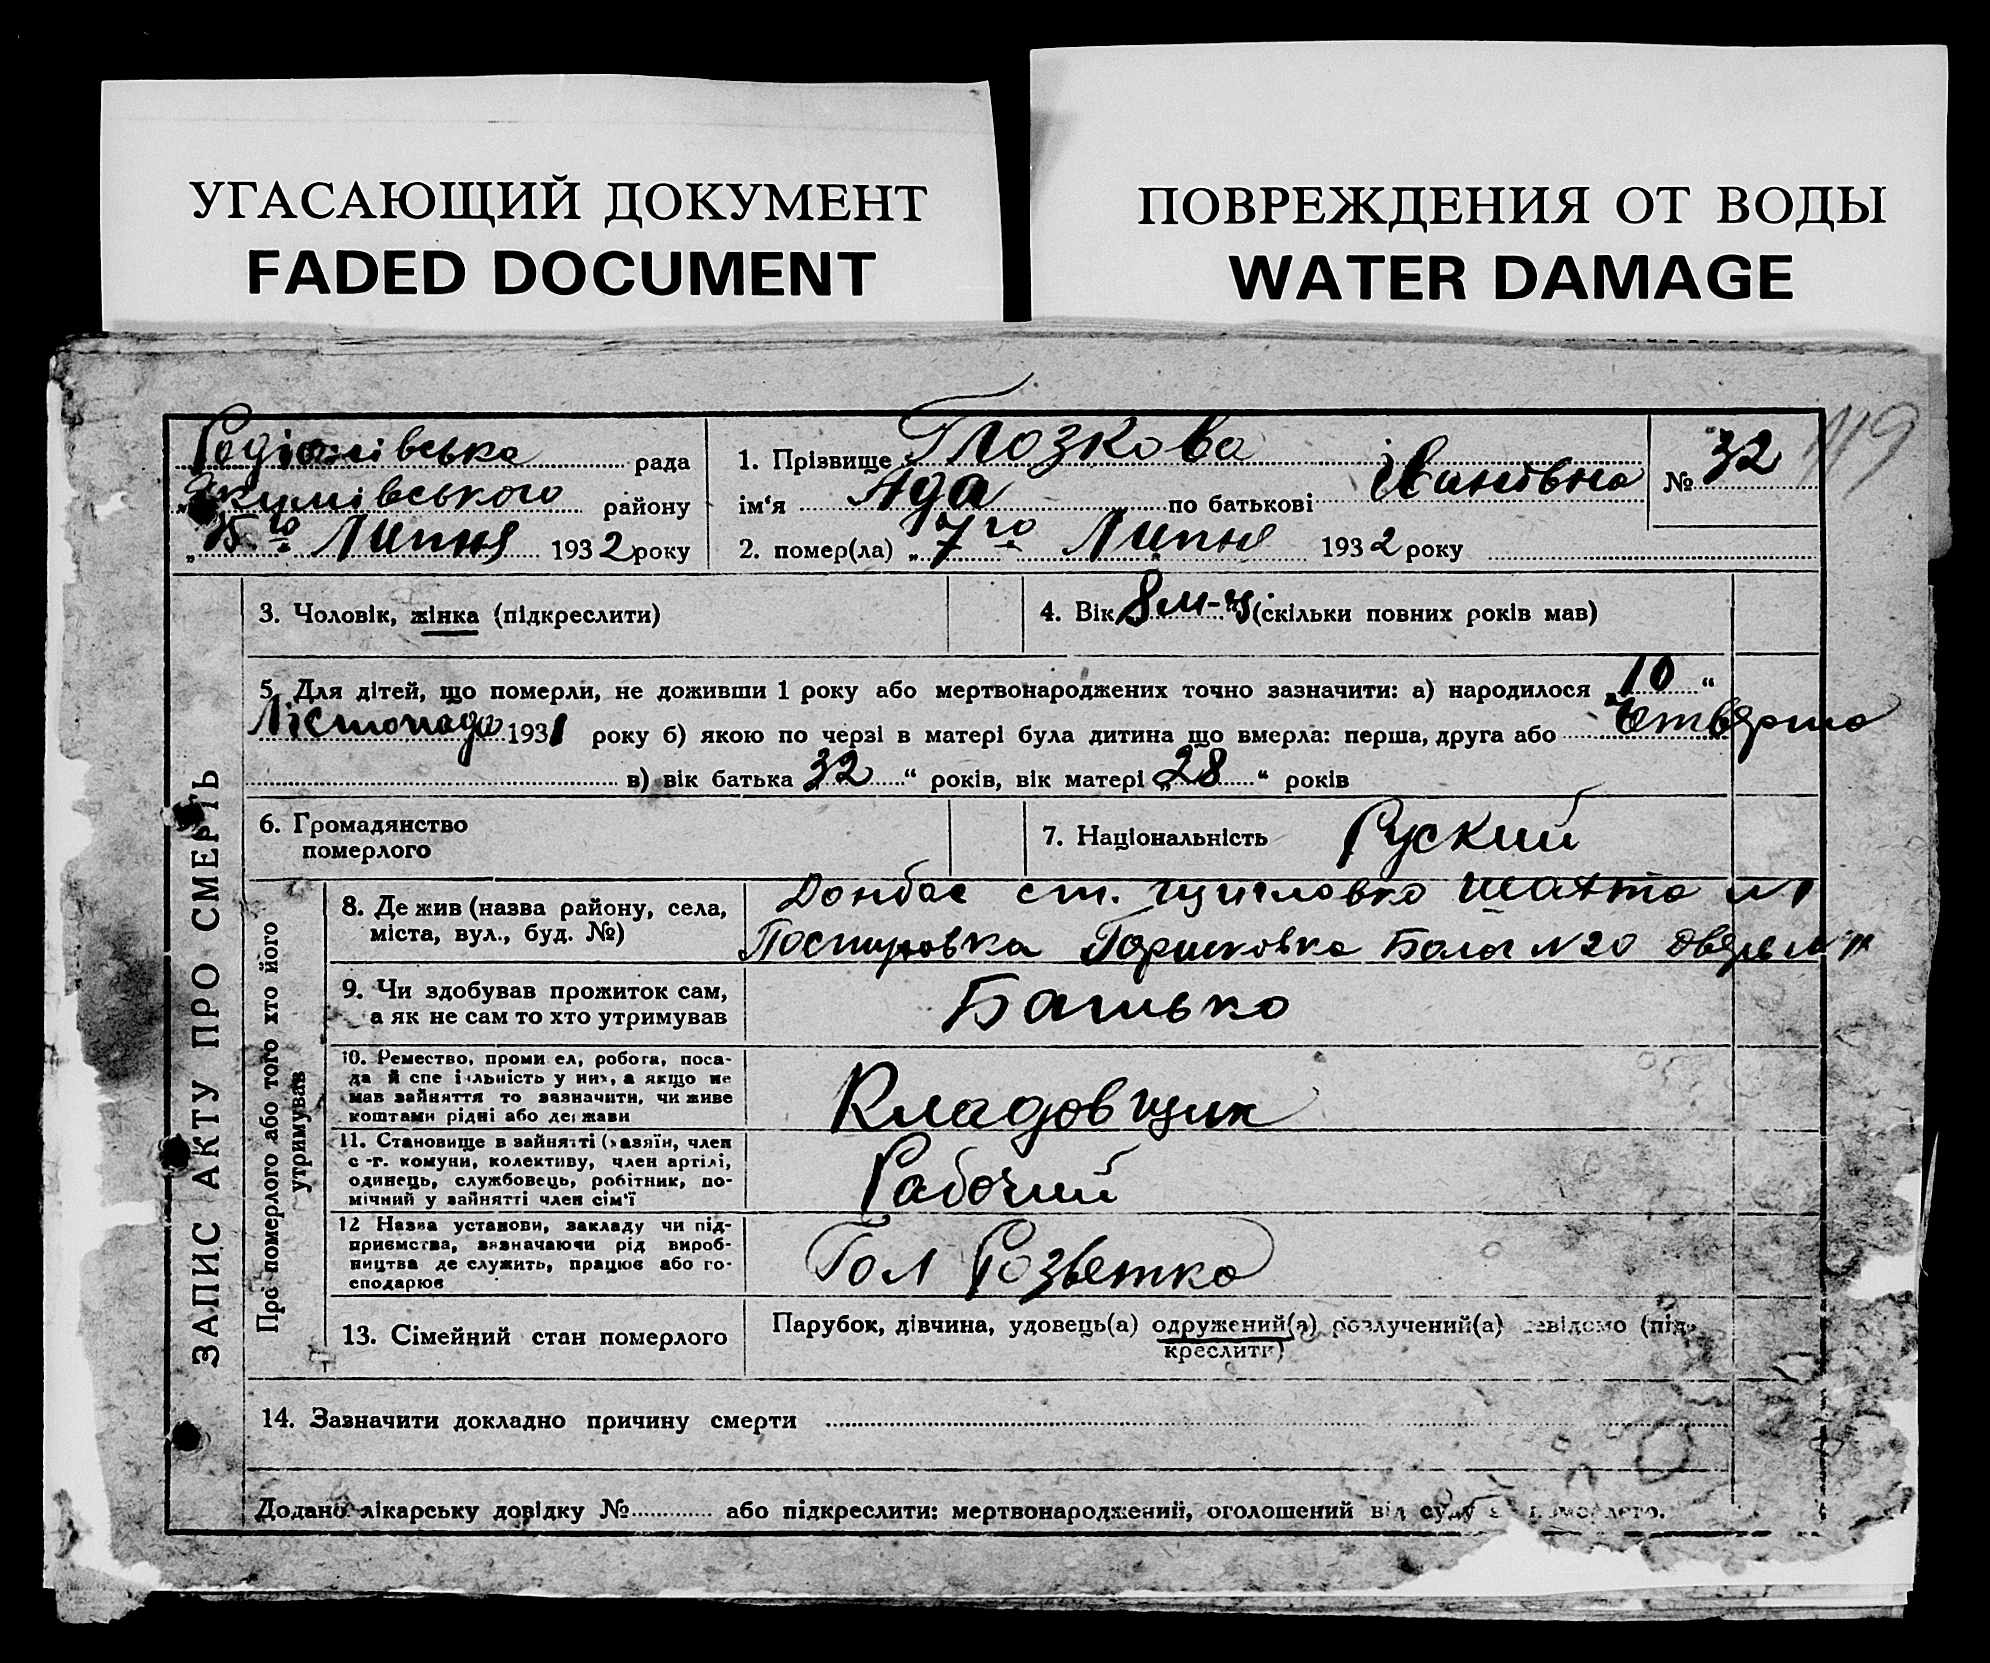 УГАСАЮЩИЙ ДОКУМЕНТ
FADED DOCUMENT
ПОВРЕЖДЕНИЯ ОТ ВОДЫ
WATER DAMAGE
119
рада
Якимівського району
Липня 1932 року
1. Прізвище Глозкова
ім‘я Ада по батькові Іванівна
2. помер(ла) „7го Липня 1932 року
№ 32
ЗАПИС АКТУ ПРО СМЕРТЬ
3. Чоловік, жінка (підкреслити)
4. Вік 8 м-ц. (скільки повних років мав)
5. Для дітей, що померли, не доживши 1 року або мертвонароджених точно зазначити: а) народилося „10“
Лістопада 1931 року б) якою по черзі в матері була дитина що вмерла: перша, друга або Четверта
в) вік батька 32“ років, вік матері „28“ років
6. Громадянство
померлого
7. Національність Руский
Про померлого або того хто його
утримував
8. Де жив (назва району, села,
міста, вул., буд. №)
Донбас ст. шахта №1
Балка №20
9. Чи здобував прожиток сам,
а як не сам то хто утримував
Батько
10. Ремество, проми ел, робота, поса-
да й спе іальність у них, а якщо не
мав зайняття то зазначити, чи живе
коштами рідні або держави
Кладовщик
11. Становище в зайнятті (хазяїн, член
с-г. комуни, колективу, член артілі,
одинець, службовець, робітник, по-
мічний у зайнятті член сім‘ї
Рабочий
12 Назва установи, закладу чи під-
приємства, зазначаючи рід вироб-
ництва де служить, працює або го-
сподарює
Гол Розветка
13. Сімейний стан померлого
Парубок, дівчина, удовець(а) одружений(а) розлучений(а) невідомо (під-
креслити)
14. Зазначити докладно причину смерти
Додано лікарську довідку № або підкреслити: мертвонароджений, оголошений від суду